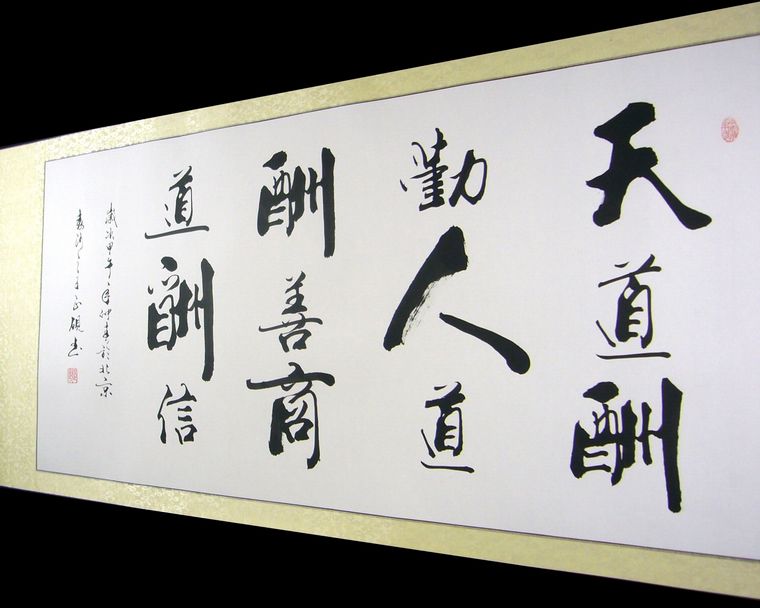 天道酬
勤人道
酬善商
道酬信
歲次甲午年仲春於北京